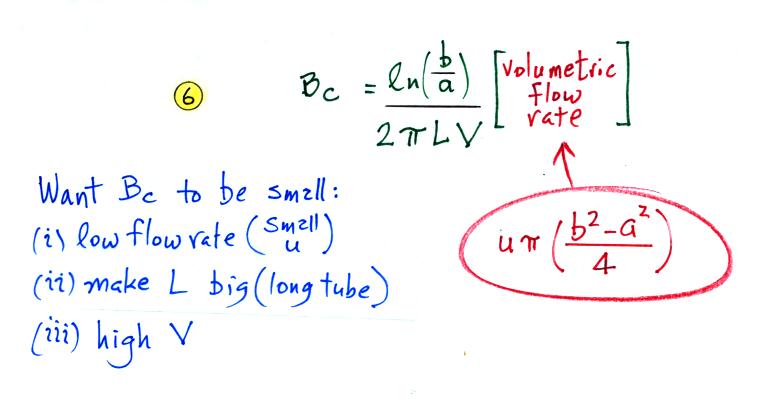 6
Bc = ln(b/a) / 2πLV [volumetric flow rate]
Want Bc to be small:
(i) low flow rate (small u)
(ii) make L big (long tube)
(iii) high V
uπ((b²-a²)/4)